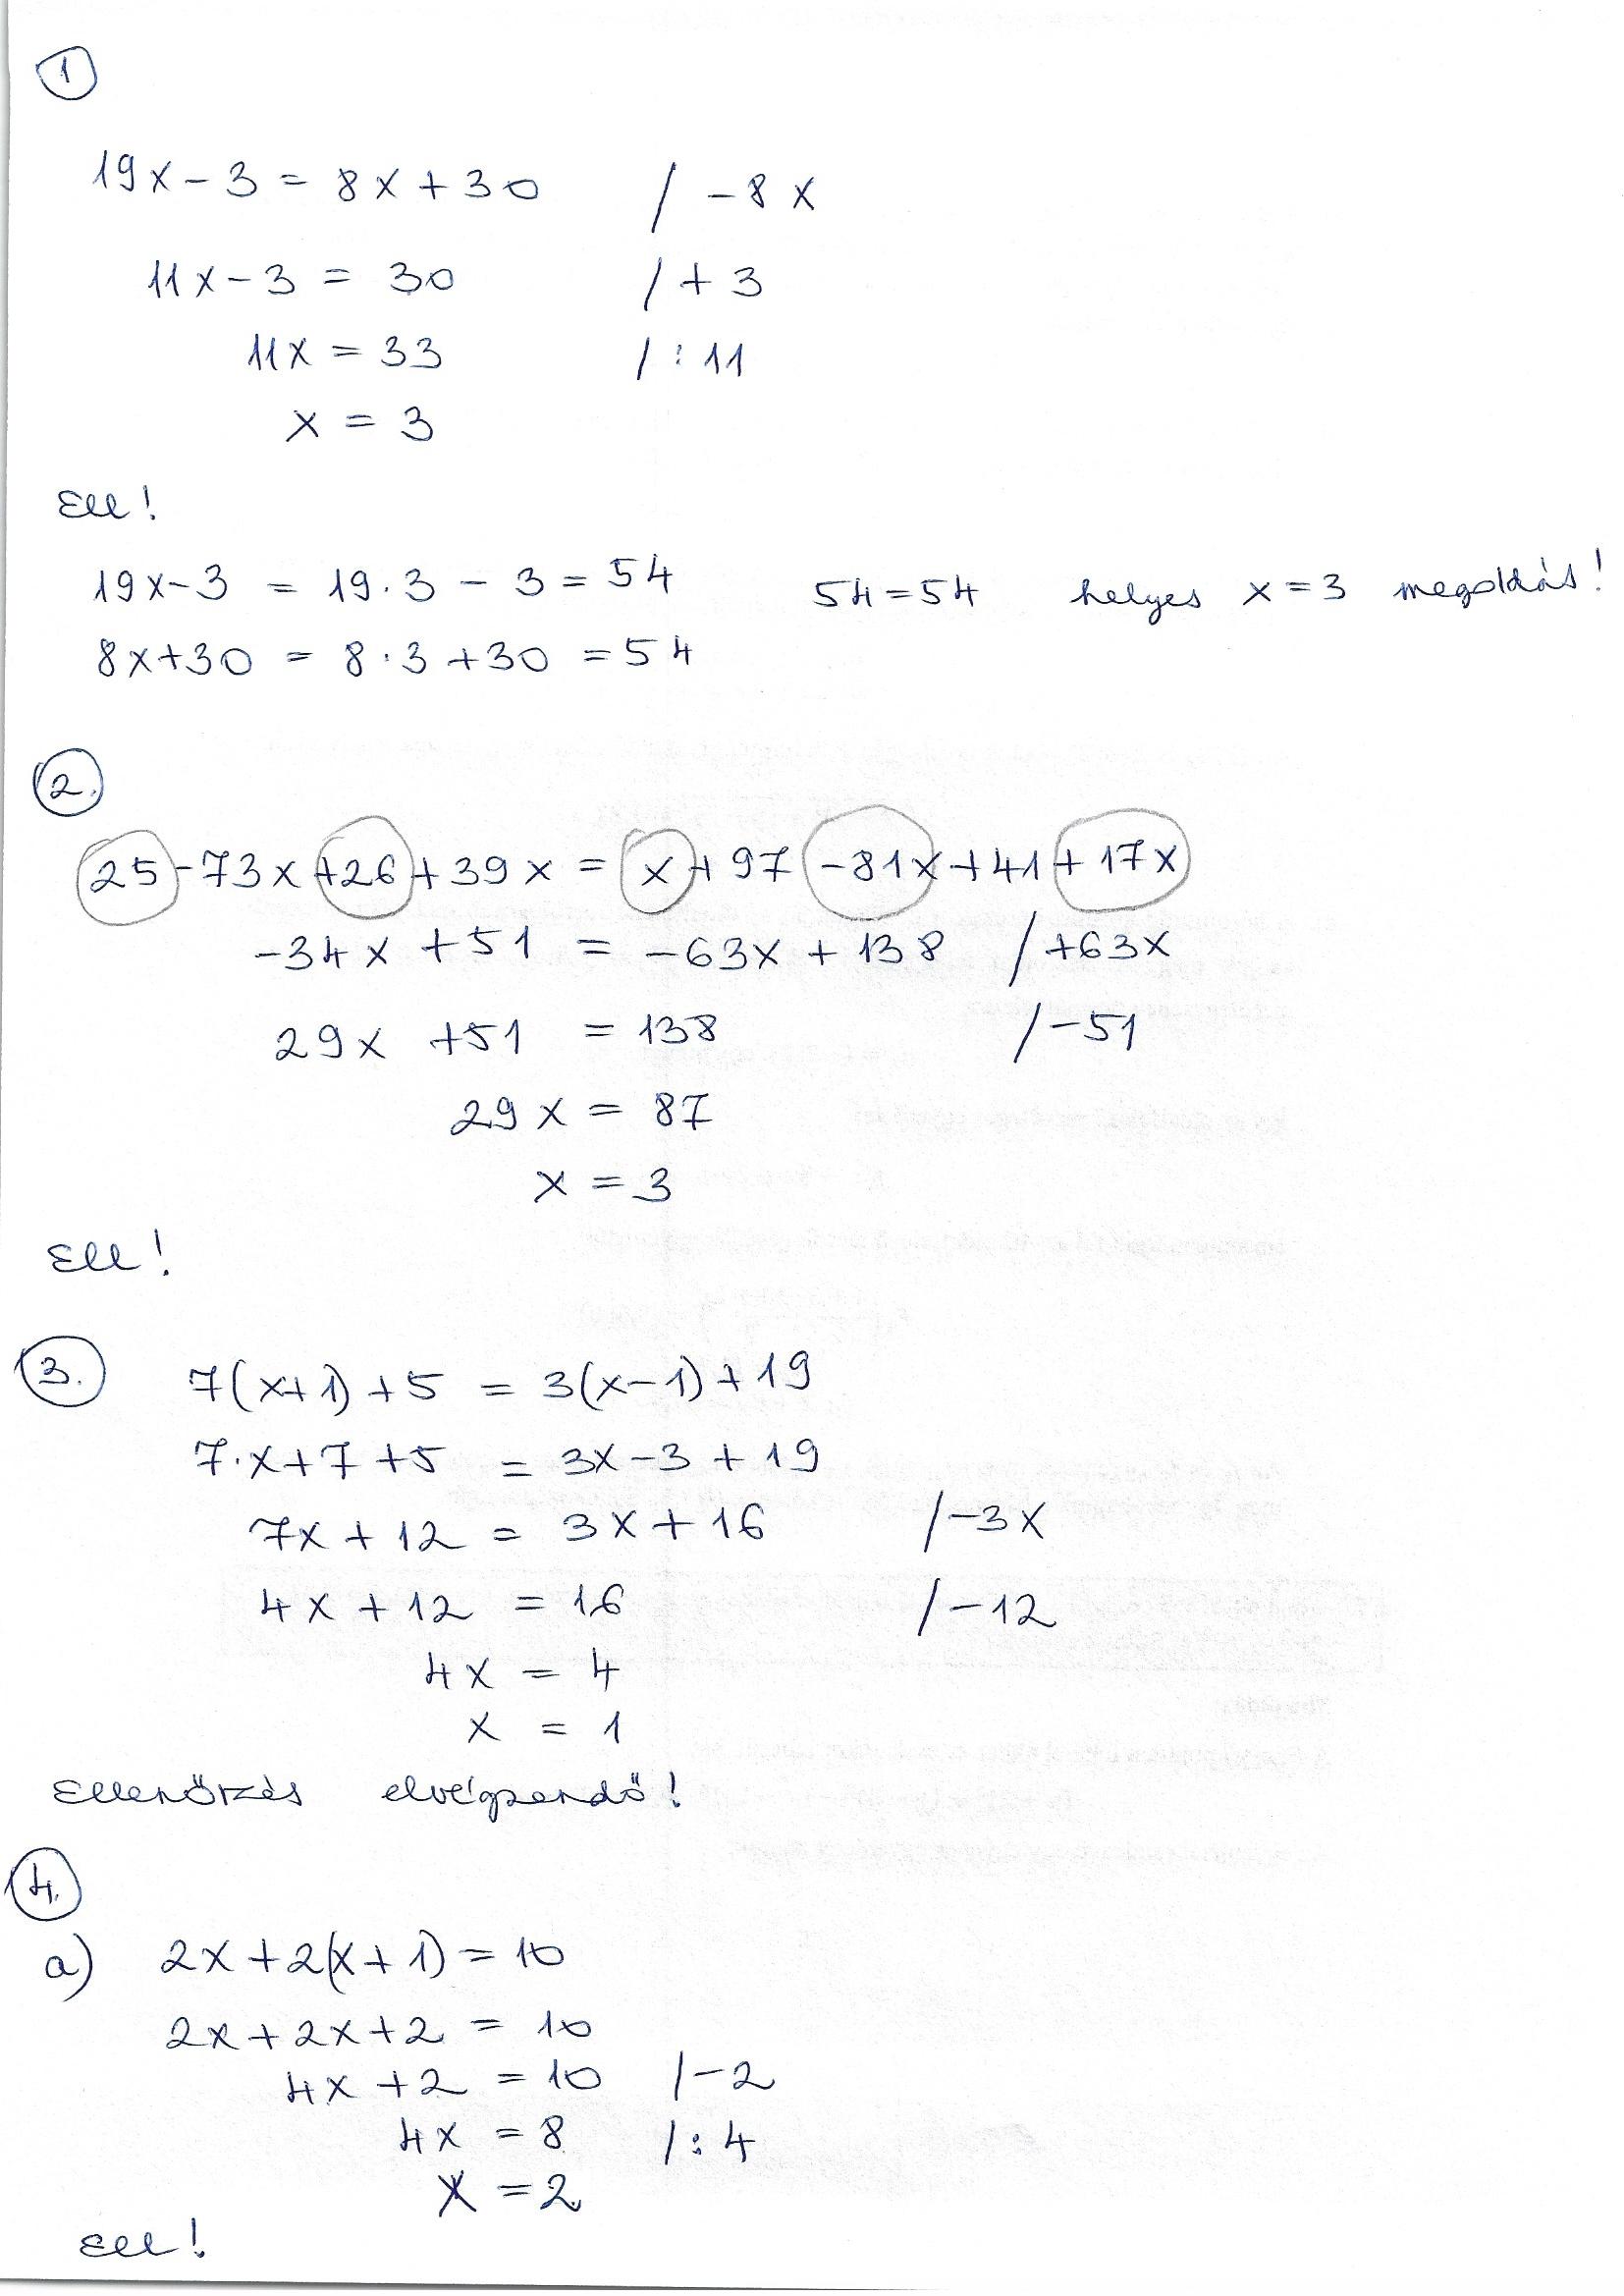 1
19x-3 = 8x+30 / -8x
11x-3 = 30 / +3
11x = 33 / : 11
x = 3
Ell!
19x-3 = 19·3 - 3 = 54 54=54 helyes x=3 megoldás!
8x+30 = 8·3+30 = 54
2.
25-73x+26+39x = x+97-81x+41+17x
-34x +51 = -63x+138 /+63x
29x +51 = 138 /-51
29x = 87
x = 3
Ell!
3. 7(x+1)+5 = 3(x-1)+19
7·x+7+5 = 3x-3+19
7x+12 = 3x+16 /-3x
4x+12 = 16 /-12
4x = 4
x = 1
Ellenőrzés elvégzendő!
4.
a) 2x+2(x+1)=10
2x+2x+2 = 10
4x+2 = 10 /-2
4x = 8 /: 4
x = 2
Ell!